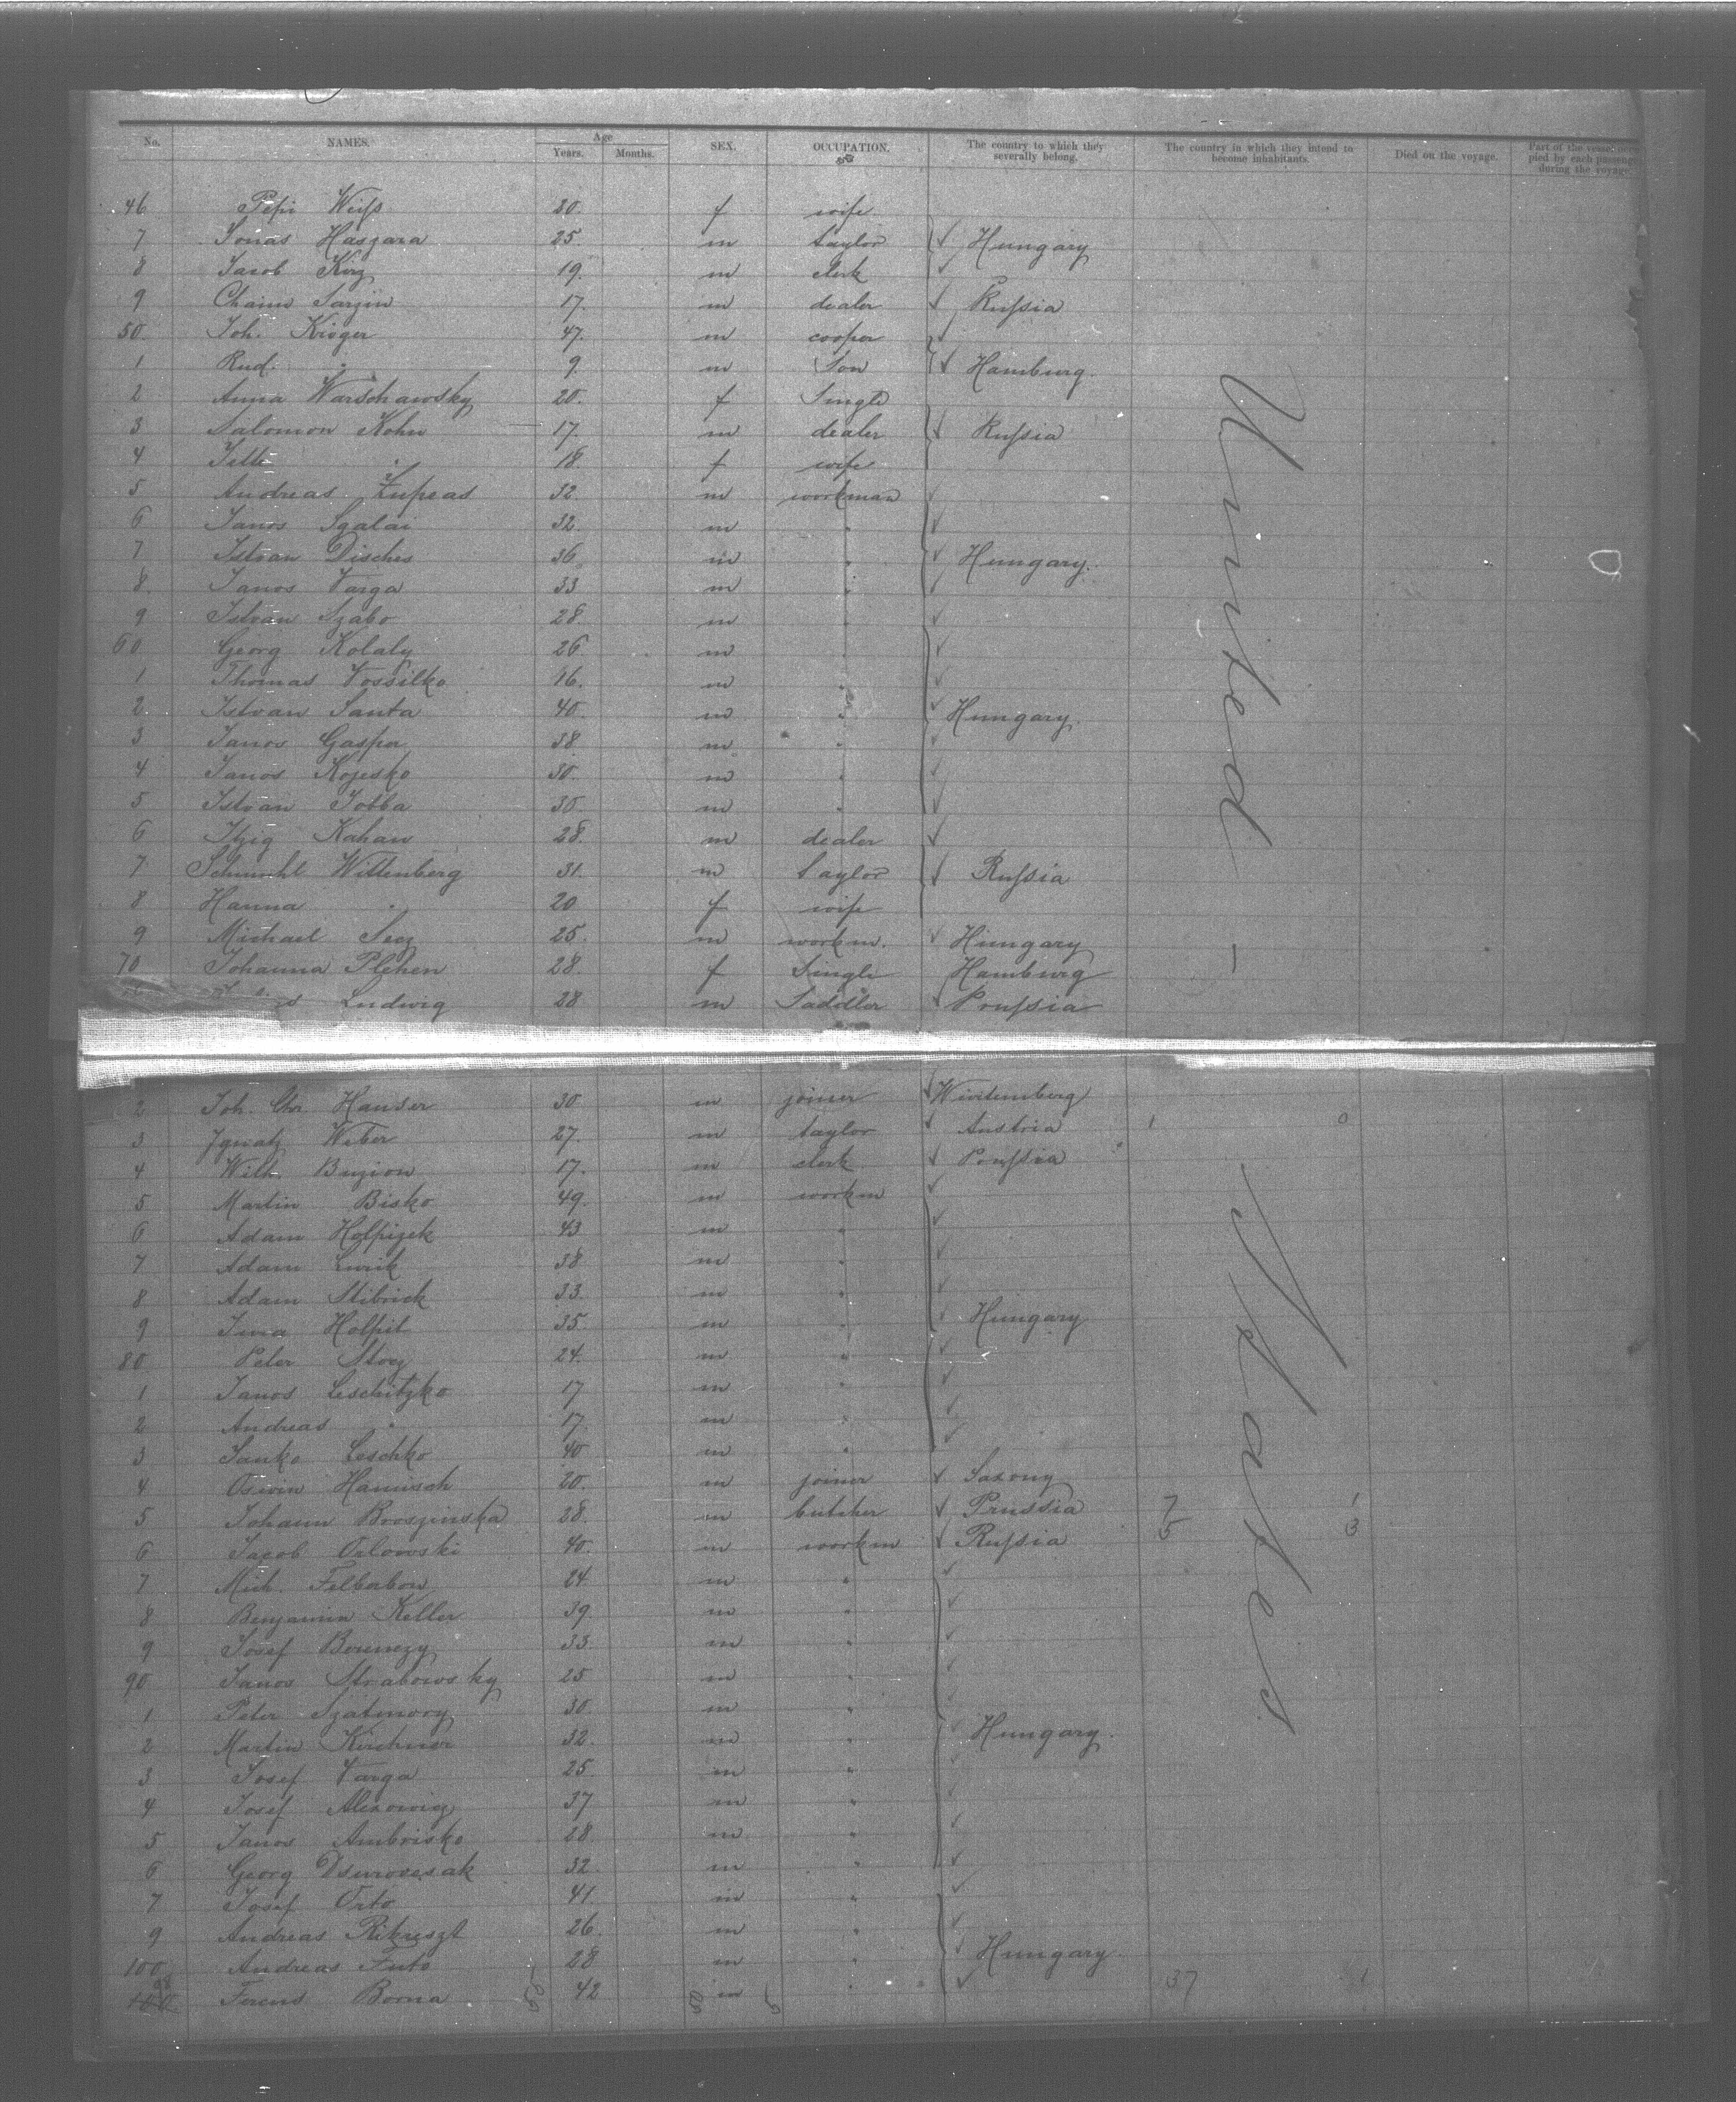 No. NAMES. Age Years. Months. SEX. OCCUPATION. The country to which they severally belong. The country in which they intend to become inhabitants. Died on the voyage. Part of the vessel occupied by each passenger during the voyage.
46 Pepi Weiſs 30. f wife
7 Jonas Haszara 25. m taylor Hungary
8 Jacob Kirz 19. m clerk
9 Chaim Sarzin 17. m dealer Ruſsia
50. Joh. Kröger 47. m cooper
1 Rud. " 9. m Son Hamburg.
2 Anna Warschawsky 20. f Single
3 Salomon Kohn 17. m dealer Ruſsia
4 " 18. f wife
5 Andreas 32. m workman
6 Janos Sgalai 32. m "
7 Istvan Disches 36. m " Hungary.
8. Janos Varga 33 m "
9 Istvan Szabo 28. m "
60 Georg Kolaly 26 m "
1 Thomas Vossilko 16. m "
2. Istvan Santa 40. m " Hungary.
3 Janos Gaspar 38. m "
4 Janos Kojesko 30. m "
5 Istvan Jobba 30. m "
6 Itzig Kahan 28. m dealer
7 Schmuhl Wittenberg 31. m taylor Ruſsia
8 Hanna " 20 f wife
9 Michael Secz 25. m workm. Hungary
70 Johanna Plehen 28. f Single Hamburg
Ludwig 28 m Saddler Pruſsia
United
2 Joh. Chr. Hauser 30. m joiner Würtemberg
3 Ignatz Weber 27. m taylor Austria 1 0
4 Wilh. Buzion 17. m clerk Pruſsia
5 Martin Bisko 49. m workm
6 Adam Holpizek 43 m "
7 Adam Lurik 38 m "
8 Adam Stibrick 33. m "
9 Holpit 35. m " Hungary
80. Peter Stocz 24. m "
1 Janos Leschitzko 17 m "
2 Andreas " 17. m "
3 Janko Leschko 40 m "
4 Oswin Hanisch 20. m joiner Saxony
5 Johann Brosziwska 28. m butcher Prussia 7 1
6 Jacob Orlowski 40. m workm Ruſsia 5 3
7 Mich. Felberbow 24 m "
8 Benjamin Keller 39. m "
9 Josef Berenczy 33. m "
90 Janos Strabowsky 25 m "
1 Peter Szatmory 30. m "
2 Martin Kirchner 32. m " Hungary.
3 Josef Varga 25. m "
4 Josef Alexowicz 37 m "
5 Janos Ambrisko 28 m "
6 Georg Dsurosesak 32. m "
7 Josef Orto 41. m "
9 Andreas Rikreszt 26. m "
100 Andreas Futo 28 m " Hungary
Ferens Borna 42 m " 37 1
States